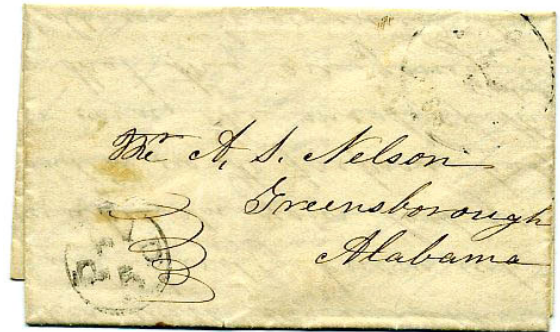 Mr A. S. Nelson
Greensborough
Alabama
PAID